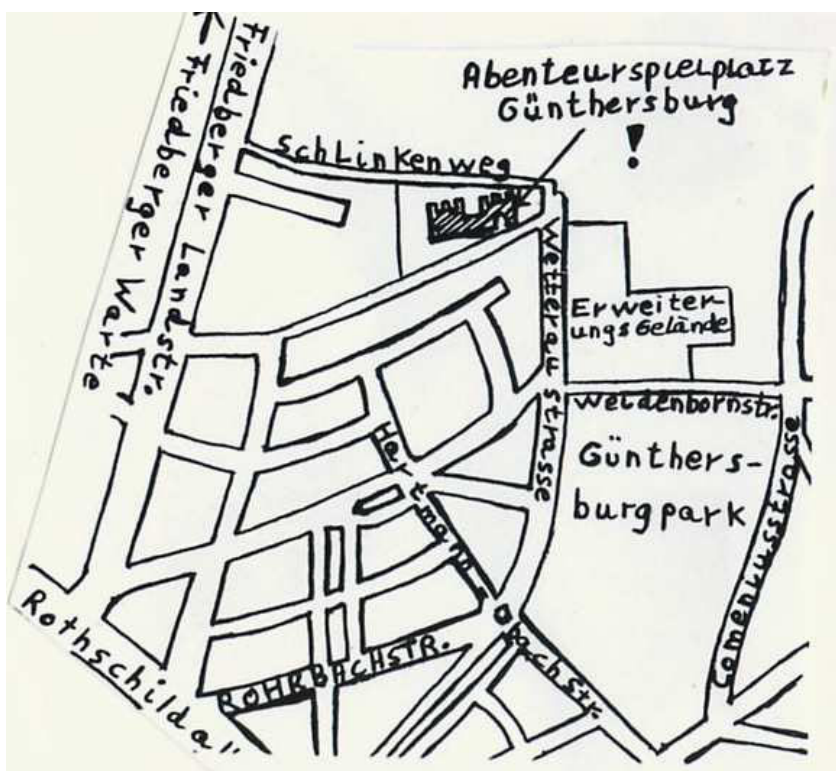 Abenteurspielplatz
Günthersburg
!
Friedberger Landstr.
← Friedberger Warte
Schlinkenweg
Wetteraustrasse
Erweiter-
ungsGelände
Weidenbornstr.
Günthers-
burgpark
Hartmann-Ibachstr.
Comeniusstrasse
ROHRBACHSTR.
Rothschildal"